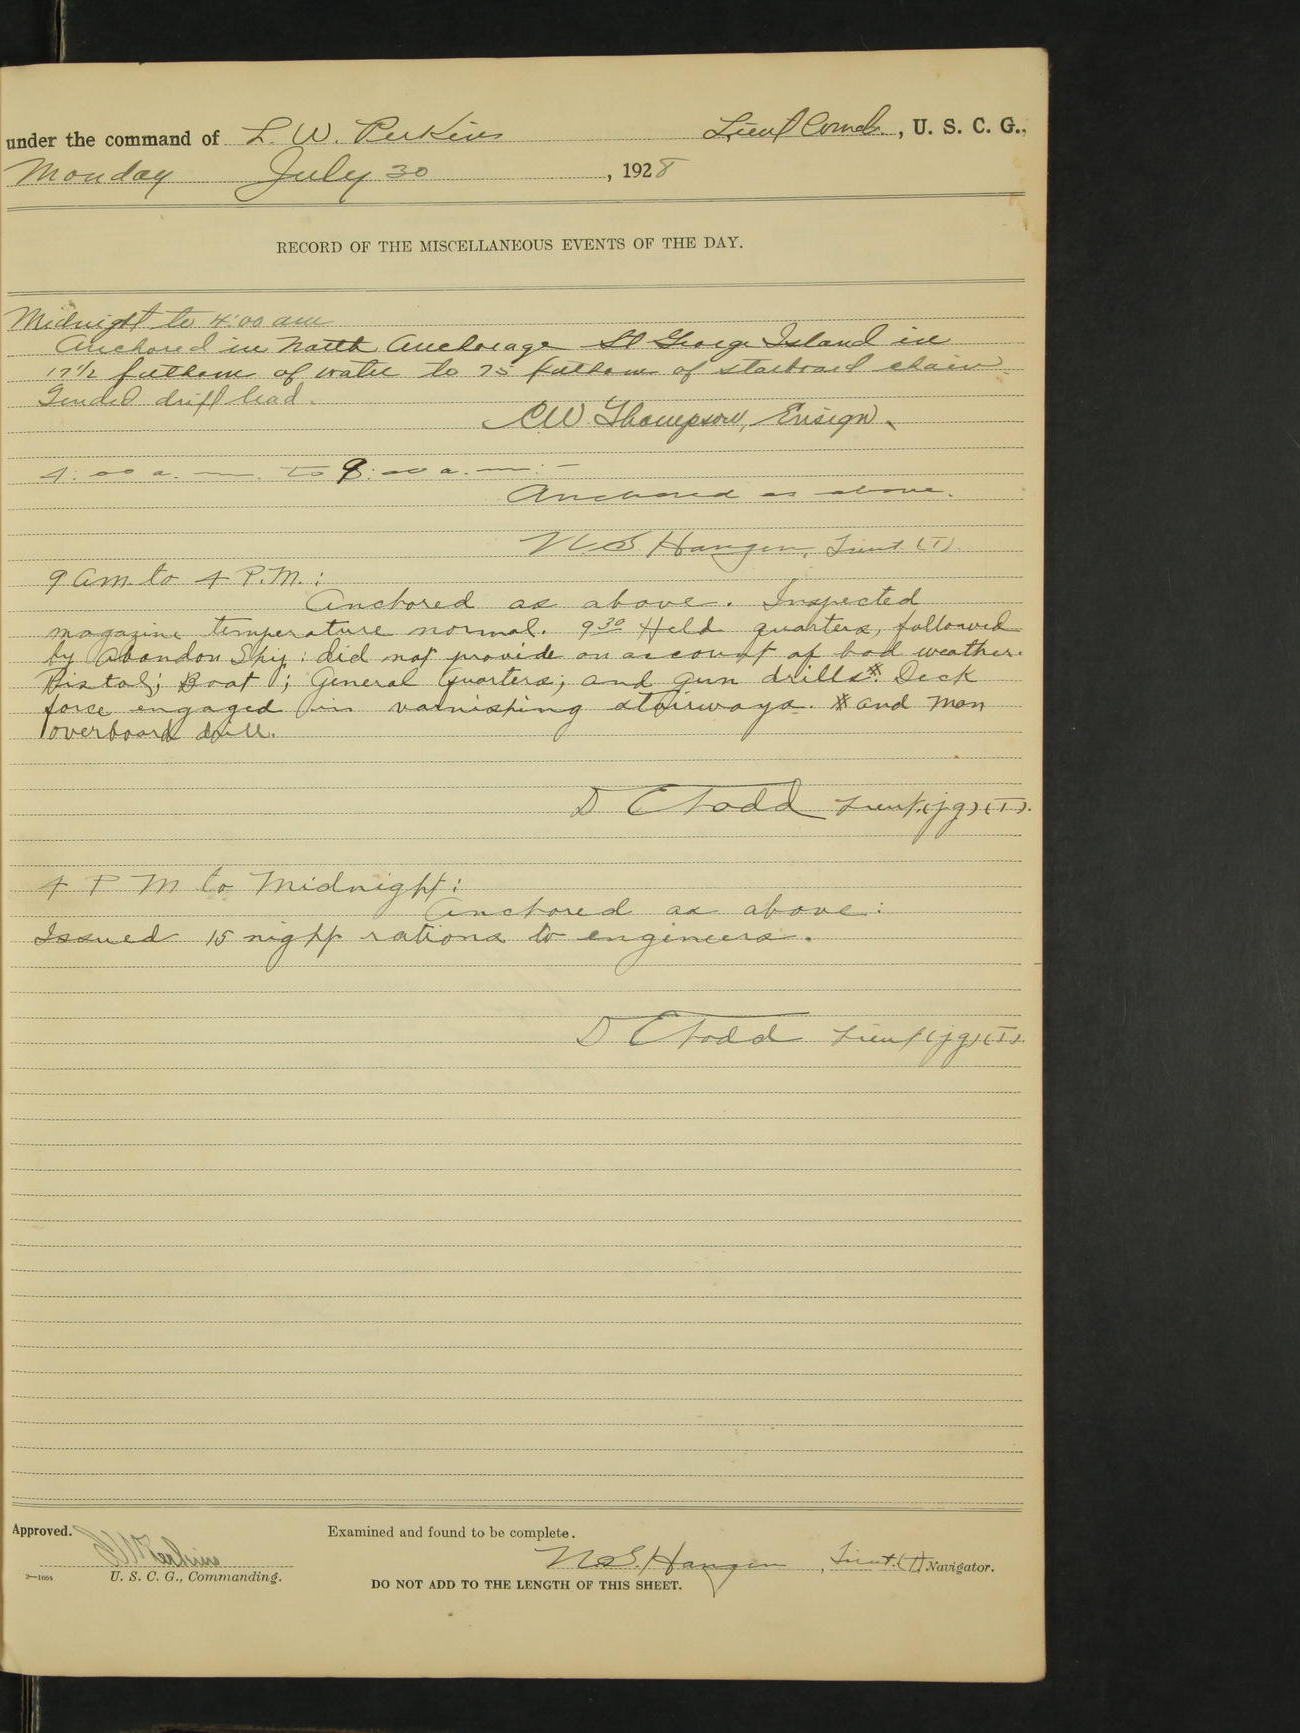 under the command of L. W. Perkins Lieut Comdr. , U. S. C. G.,
Monday July 30 , 1928
RECORD OF THE MISCELLANEOUS EVENTS OF THE DAY.
Midnight to 4:00 am
Anchored in North Anchorage St George Island in
17½ fathom of water to 75 fathom of starboard chain
Tended drift lead.
CW Thompson, Ensign.
4:00 a.m. to 9:00 a.m:-
Anchored as above.
N S Haugen, Lieut (T)
9 am to 4 P.M.:
Anchored as above. Inspected
magazine temperature normal. 9 30 Held quarters, followed
by Abandon Ship: did not provide on account of bad weather.
Pistol; Boat; General Quarters; and gun drills*. Deck
force engaged in varnishing stairways. * and man
overboard drill.
D C Todd Lieut.(jg)(T).
4 P M to Midnight:
Anchored as above:
Issued 15 night rations to engineers.
D C Todd Lieut(jg)(T).
Approved. Examined and found to be complete.
L W Perkins N.S. Haugen , Lieut.(T) Navigator.
2—1664 U. S. C. G., Commanding.
DO NOT ADD TO THE LENGTH OF THIS SHEET.